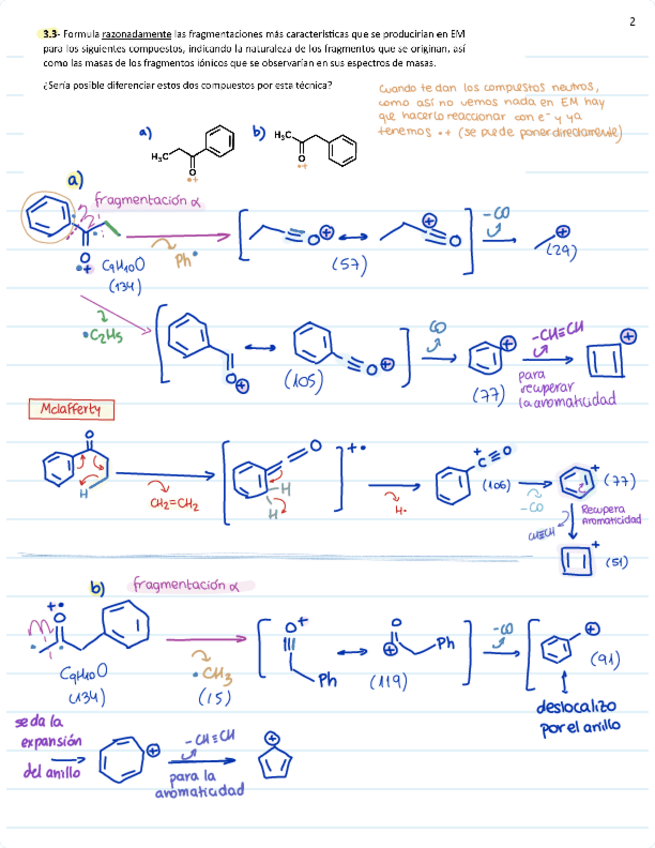 2
3.3- Formula razonadamente las fragmentaciones más características que se producirían en EM
para los siguientes compuestos, indicando la naturaleza de los fragmentos que se originan, así
como las masas de los fragmentos iónicos que se observarían en sus espectros de masas.
¿Sería posible diferenciar estos dos compuestos por esta técnica?
Cuando te dan los compuestos neutros,
como así no vemos nada en EM hay
que hacerlo reaccionar con e⁻ y ya
tenemos •+ (se puede poner directamente)
a) H₃C O •+
b) H₃C O •+
a)
fragmentación α
O •+ C9H10O
(134)
Ph•
O⊕ ↔ ⊕ O
(57)
-CO
⊕
(29)
•C2H5
O⊕ ↔ O⊕
(105)
CO
⊕
(77)
-CH≡CH
para
recuperar
la aromaticidad
⊕
Mclafferty
O
H
CH2=CH2
O
H
H
+•
H•
+
C≡O
(106)
-CO
+
(77)
Recupera
Aromaticidad
CH≡CH
+
(51)
b)
fragmentación α
+•
O
C9H10O
(134)
•CH3
(15)
O+
Ph
↔
O
⊕
Ph
(119)
-CO
⊕
(91)
deslocalizo
por el anillo
se da la
expansión
del anillo
⊕
-CH≡CH
para la
aromaticidad
⊕